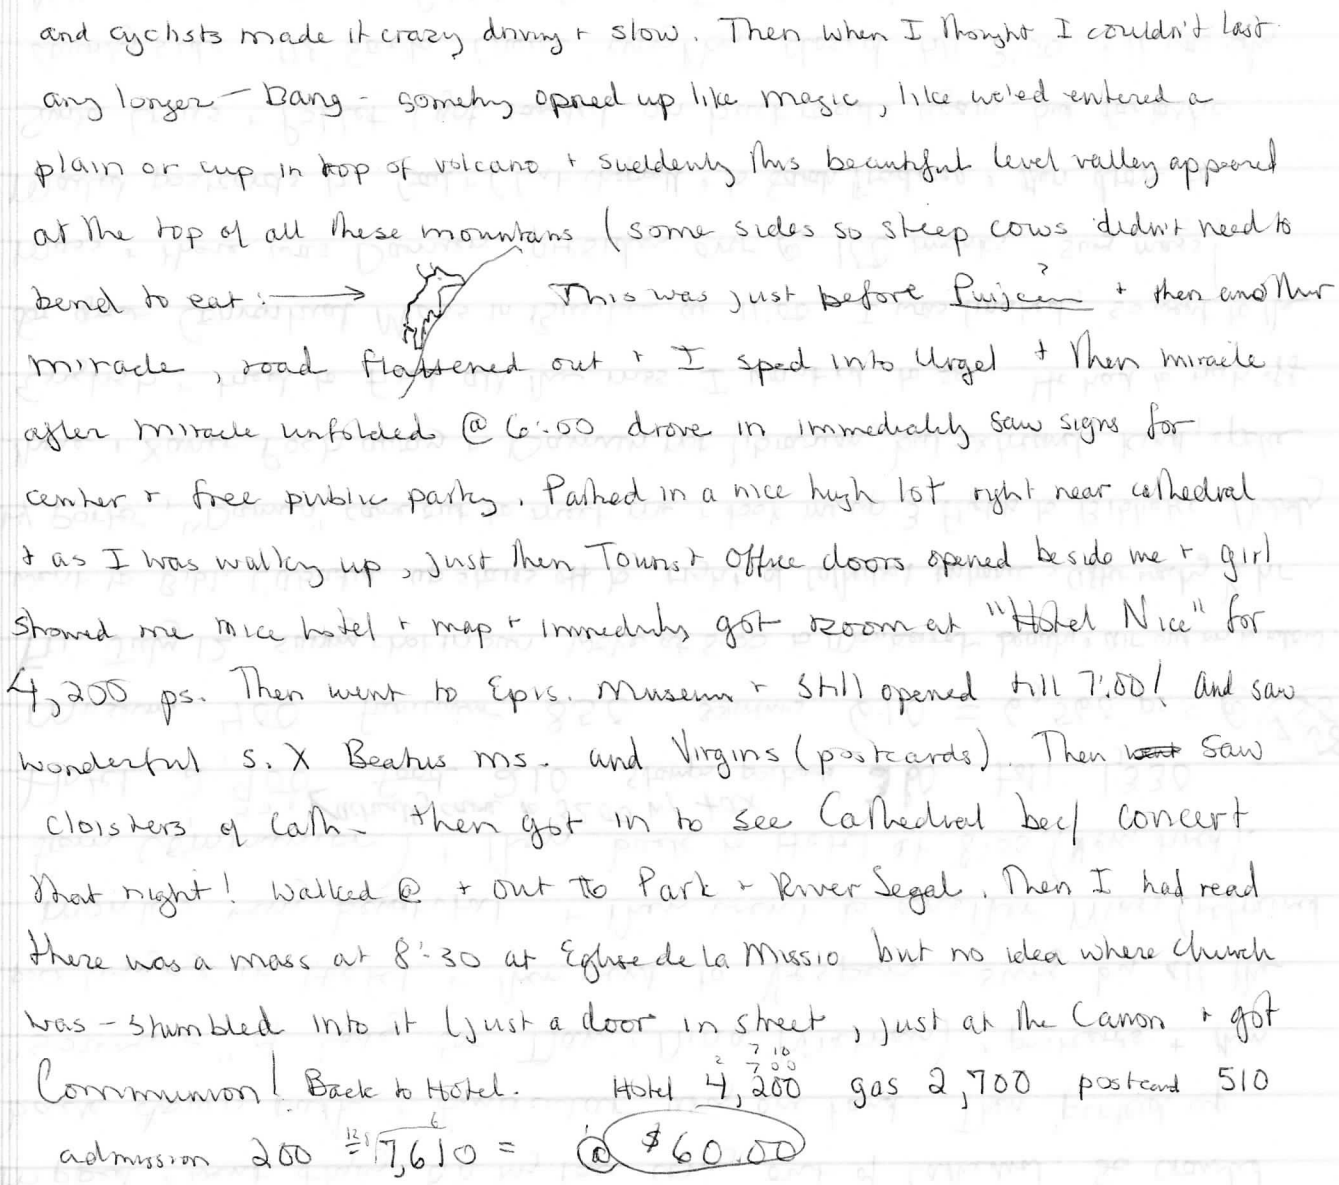 and cyclists made it crazy driving + slow. Then when I thought I couldn't last
any longer - Bang - somethg opned up like magic, like we'ed entered a
plain or cup in top of volcano + suddenly this beautiful level valley appeared
at the top of all these mountains (some sides so steep cows didn't need to
bend to eat: → This was just before ? + then another
miracle, road flattened out + I sped into Urgel + then miracle
after miracle unfolded @ 6:00 drove in immediately saw signs for
center + free public parkg. Parked in a nice high lot right near cathedral
+ as I was walkg up, just then Tourist Office doors opened beside me + girl
showed me nice hotel + map + immediately got room at "Hotel Nice" for
4,200 ps. Then went to Epis. Museum + still opened till 7:00! and saw
wonderful s. X Beatus ms. and Virgins (postcards). Then went saw
cloisters of Cath- then got in to see Cathedral bec/ concert
that night! Walked @ + out to Park + River Segal. Then I had read
there was a mass at 8:30 at Eglise de la Missio but no idea where church
was - stumbled into it (just a door in street, just at the Canon + got
Communion! Back to Hotel. Hotel 4,200 gas 2,700 postcard 510
admission 200 7,610 = @ $60.00